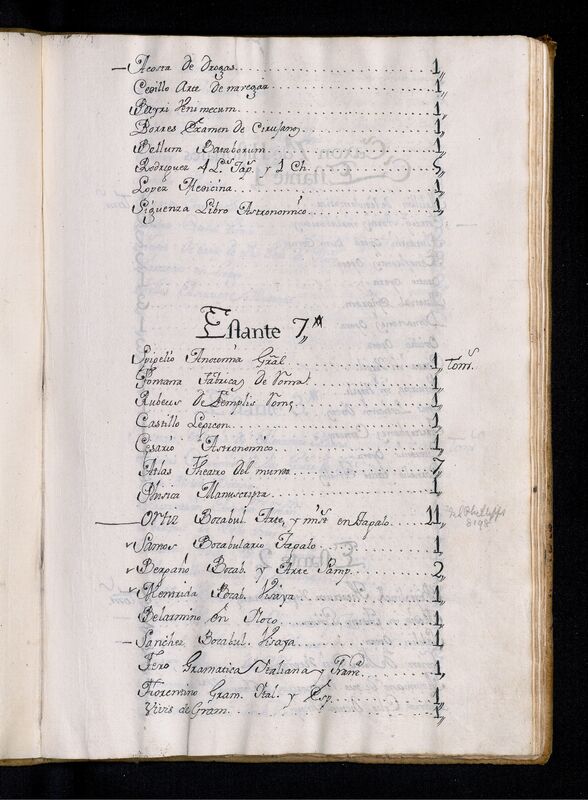 Acosta de drogas 1,,
Cevillo Arte de navegar 1,,
Bayri Venimecum 1,,
Porres Examen de Cirujano 1,,
Bellum Bataborum 1,,
Rodriguez 4 L.s Tag.s y 1 Ch. 5,,
Lopez Medicina 1,,
Siguenza Libro Astronomico 1,,
Estante 7,,
Spigelio Anotomia Gral 1,, Tom.s
Fontana Fabricas de Roma 1,,
Rubeus de Templis Rom. 1,,
Castillo Lexicon 1,,
Cesario Astronomico 1,,
Atlas Theatro del mundo 7,,
Phisica Manuscripta 1,,
Ortiz Bocabul. Arte, y mist en Tagalo 11,,
Ramos Bocabulario Tagalo 1,,
Bergaño Bocab. y Arte Pamp. 2,,
Mentrida Bocab. Visaya 1,,
Belarmino en Yloco 1,,
Sanchez Bocabul. Visaya 1,,
Fero Gramatica Italiana y Fran.a 1,,
Fiorentino Gram. Ital. y Esp. 1,,
Vivis de Gram. 1,,
Phillipps
8198